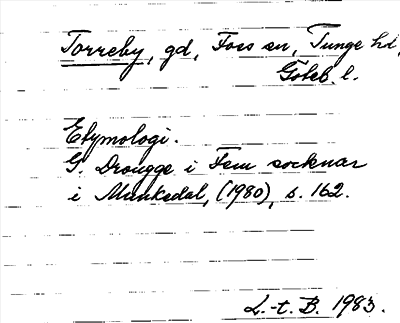 Torreby, gd, Foss sn, Tunge hd,
Göteb. l.
Etymologi.
G. Drougge i Fem socknar
i Munkedal, (1980), s. 162.
L.-t. B. 1983.